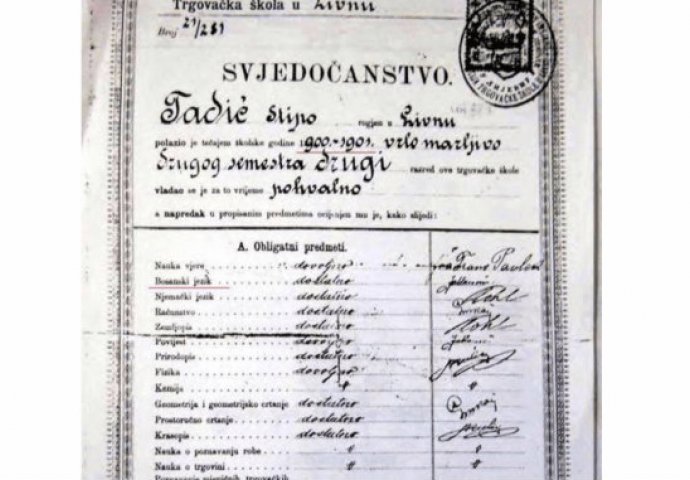 Trgovačka škola u Livnu
Broj 21/281
SVJEDOČANSTVO.
Tadić Stipo rogjen u Livnu
polazio je tečajem školske godine 1900.-1901. vrlo marljivo
drugog semestra drugi razred ove trgovačke škole
vladao se je za to vrijeme pohvalno
a napredak u propisanim predmetima ocijenjen mu je, kako slijedi:
A. Obligatni predmeti.
Nauka vjere dovoljno Frano
Bosanski jezik dostatno
Njemački jezik dostatno Kohl
Računstvo dostatno
Zemljopis dostatno Kohl
Povijest dovoljno
Prirodopis dostatno
Fizika dovoljno
Kemija " "
Geometrija i geometrijsko crtanje dostatno
Prostoručno crtanje dostatno
Krasopis dostatno
Nauka o poznavanju robe " "
Nauka o trgovini " "